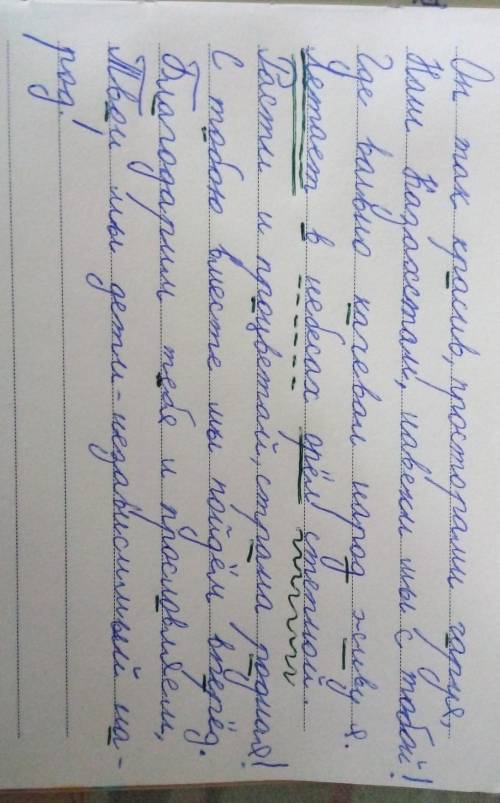 Он так красив, просторами гаруя,
Наш Казахстан, навеки мы с тобой!
Где вольно кочевал народ живу я.
Летает в небесах орёл степной.
Расти и процветай, страна родная!
С тобою вместе мы пойдём вперёд.
Благодарим тебя и прославляем,
Твои мы дети-независимый на-
род!